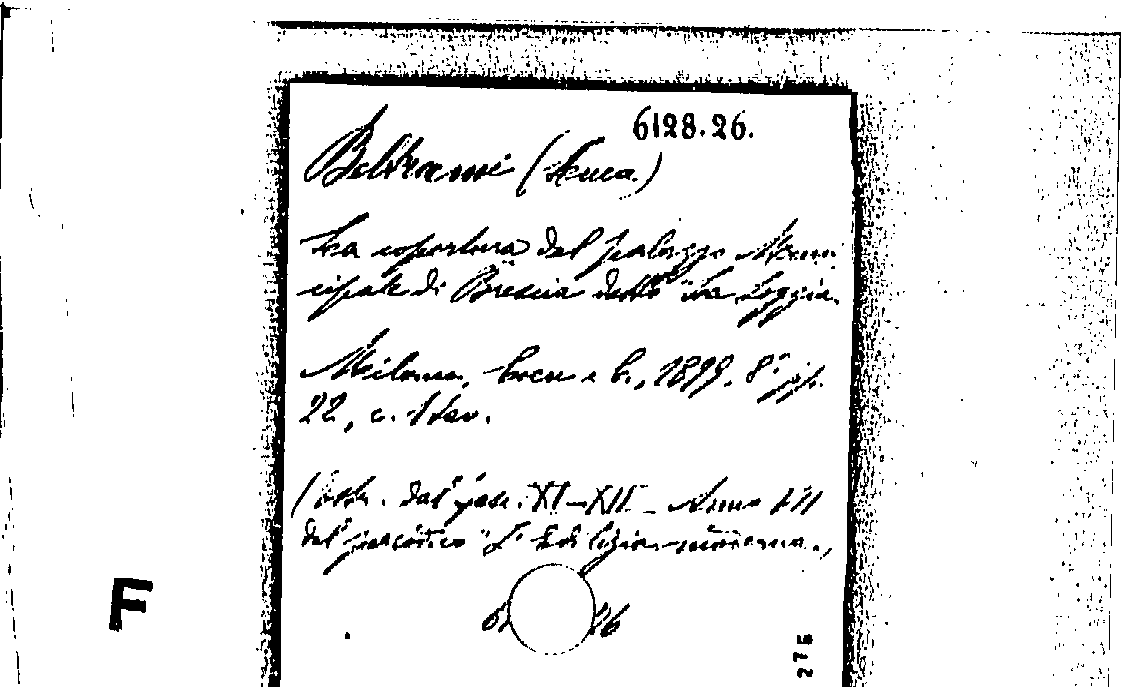 6128.26.
Beltrami (Luca.)
La copertura del palazzo Muni
cipale di Brescia detto "La Loggia.
Milano, e b., 1899. 8° pp.
22, c. 1 tav.
(Estr. dal fasc. XI-XII - Anno VII
del periodico "L'Edilizia moderna.,
6 26
F
275